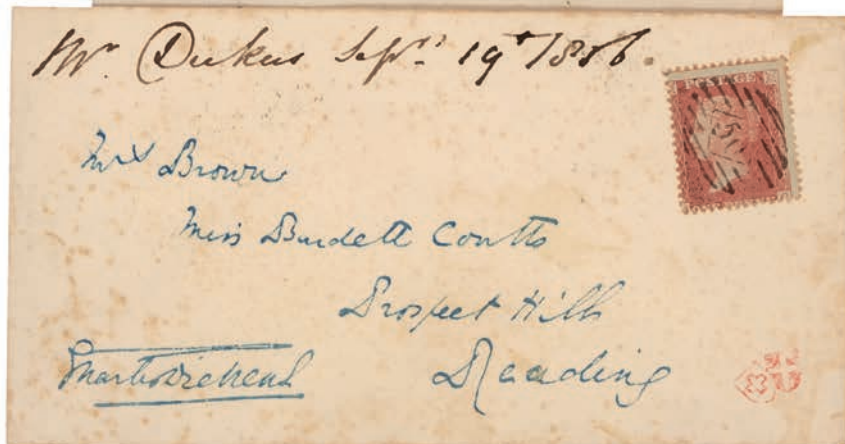 Mr. Dickens Sept. 19th 1856.
POSTAGE
Mrs Brown
Miss Burdett Coutts
Prospect Hill
Reading
Charles Dickens